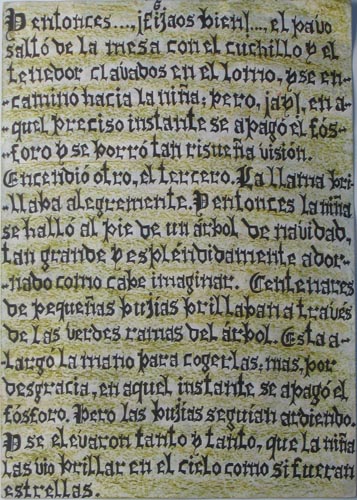 6.
Y entonces...., ¡fijaos bien!...., el pavo
saltó de la mesa con el cuchillo y el
tenedor clavados en el lomo, y se en-
-caminó hacia la niña; pero, ¡ay!, en a-
-quel preciso instante se apagó el fós-
-foro y se borró tan risueña visión.
Encendió otro, el tercero. La llama bri-
llaba alegremente. Y entonces la niña
se halló al pie de un árbol de navidad,
tan grande y espléndidamente ador-
-nado como cabe imaginar. Centenares
de pequeñas bujias brillaban a través
de las verdes ramas del árbol. Esta a-
largó la mano para cogerlas; mas, por
desgracia, en aquel instante se apagó el
fósforo. Pero las bujias seguian ardiendo.
Y se elevaron tanto y tanto, que la niña
las vio brillar en el cielo como si fueran
estrellas.